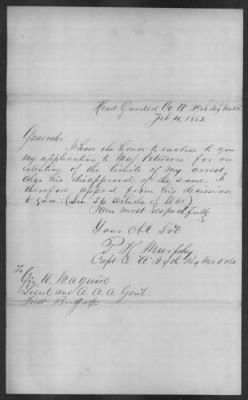 Head Quarters Co A 24th Reg Mo Vol
Feb 10, 1863.
General:
I have the honor to enclose to you
my application to Maj for an
extention of the limits of my arrest
also his disapproval of the same. I
therefore appeal from his decission
to you. (See 34 Article of War)
I am most respectfully
Your Obt Svt
P. Murphy
Capt Co A 24th Reg Mo Vols
To
Maguire
Lieut and A A A Genl.
First Brigade